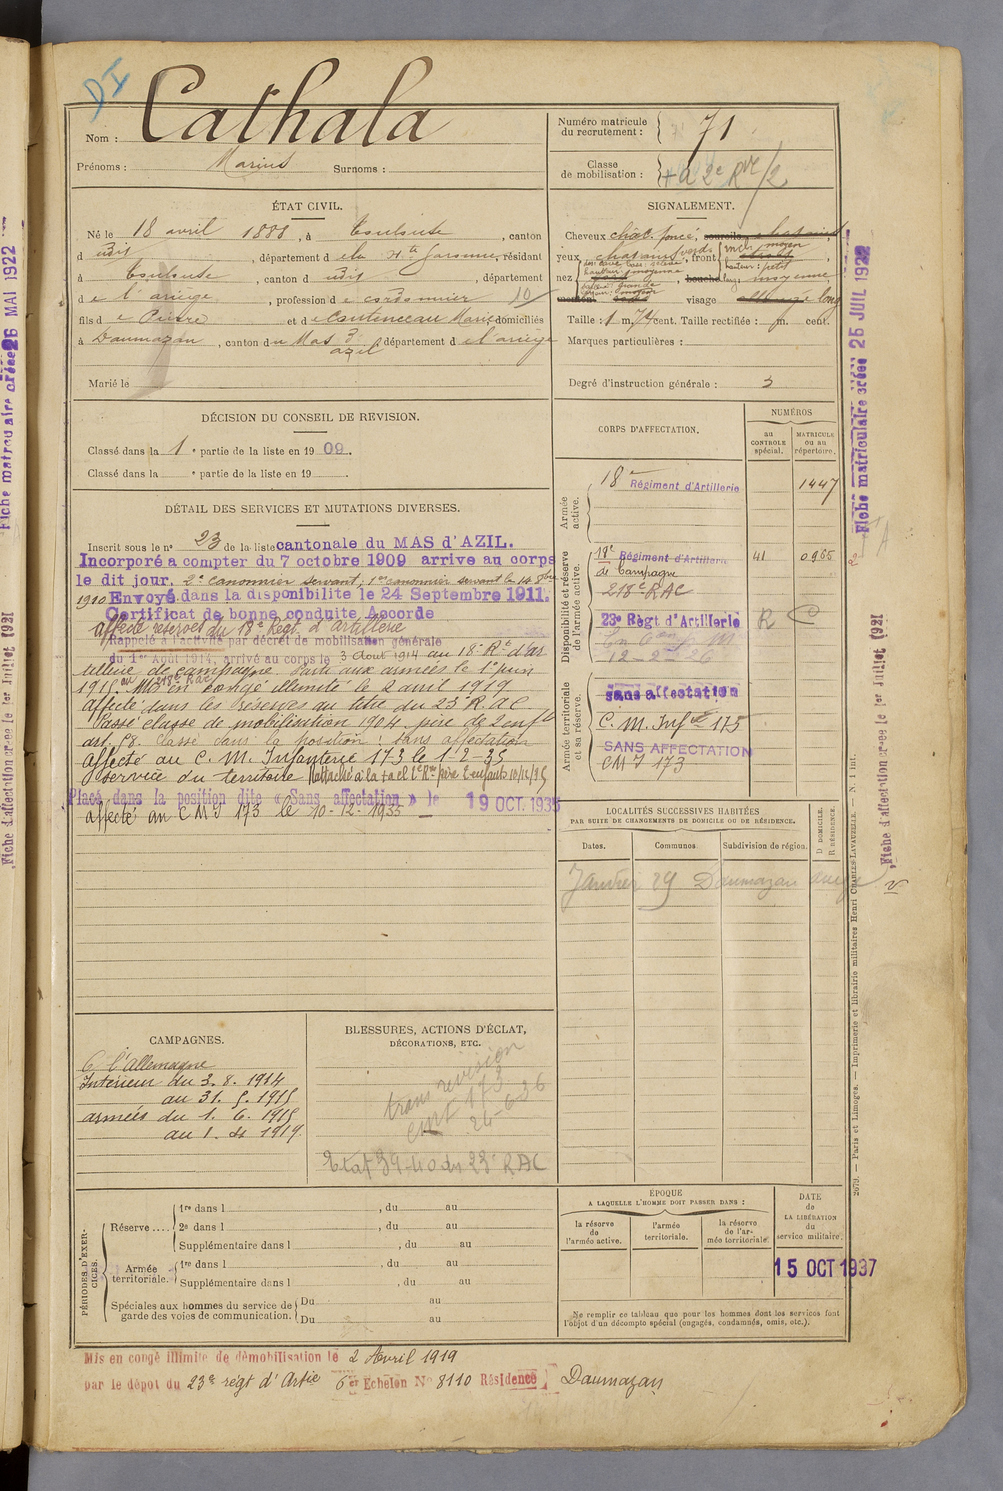 DI
Nom : Cathala
Prénoms : Marius Surnoms :
Numéro matricule du recrutement : 71
Classe de mobilisation : + à 2e Rve/2
ÉTAT CIVIL.
Né le 18 avril 1888, à Toulouse, canton
d udit, département d e la Hte Garonne, résidant
à Toulouse, canton d udit, département
d e l'ariège, profession d e cordonnier 10
fils d e Pierre et d e Marie domiciliés
à Daumazan, canton du Mas d'azil, département d e l'ariège
Marié le
SIGNALEMENT.
Cheveux chât. foncé, sourcils
yeux, front
nez, bouche
menton visage long
Taille : 1 m. 74 cent. Taille rectifiée : m. cent.
Marques particulières :
Degré d'instruction générale : 3
DÉCISION DU CONSEIL DE REVISION.
Classé dans la 1 e partie de la liste en 19 09.
Classé dans la e partie de la liste en 19
DÉTAIL DES SERVICES ET MUTATIONS DIVERSES.
Inscrit sous le n° 23 de la liste cantonale du MAS d'AZIL.
Incorporé a compter du 7 octobre 1909 arrive au corps
le dit jour. 2e canonnier servant, 1er canonnier servant le 14 8bre
1910 Envoyé dans la disponibilite le 24 Septembre 1911.
Certificat de bonne conduite Accorde
affecté réserves du 18e Regt d'artillerie
Rappelé à l'activité par décret de mobilisation générale
du 1er Août 1914, arrivé au corps le 3 Aout 1914 au 18e Rt d'ar
tillerie de campagne. Parti aux armées le 1er juin
1915. au 218e RAC Mis en congé illimité le 2 avril 1919
affecté dans les Réserves au titre du 23 R.A.C
Passé classe de mobilisation 1904, père de 2 enfts
art. 58. Classé dans la position : Sans affectation
Affecté au C. M. Infanterie 173 le 1-2-35
Service du territoire Rattaché à la La cl 2e Rve père 2 enfants 10/12/35
Placé dans la position dite « Sans affectation » le 19 OCT. 1935
affecté au C M I 173 le 10-12-1935
CORPS D'AFFECTATION.
NUMÉROS
au CONTROLE spécial.
MATRICULE ou au répertoire.
Armée active.
18e Régiment d'Artillerie 1447
Disponibilité et réserve de l'armée active.
18e Régiment d'Artillerie 41 0965
de Campagne
218e RAC
23e Régt d'Artillerie R C
12-2-26
Armée territoriale et sa réserve.
sans affectation
C. M. Infie 175
SANS AFFECTATION
CMI 173
LOCALITÉS SUCCESSIVES HABITÉES
PAR SUITE DE CHANGEMENTS DE DOMICILE OU DE RÉSIDENCE.
Dates. Communes. Subdivision de région. D DOMICILE. R RÉSIDENCE.
Janvier 29 Daumazan
CAMPAGNES.
C. l'Allemagne
Intérieur du 3. 8. 1914
au 31. 5. 1915
armées du 1. 6. 1915
au 1. 4 1919.
BLESSURES, ACTIONS D'ÉCLAT,
DÉCORATIONS, ETC.
trans revision
CMI 173
24-6-26
Etat 39-40 du 23e RAC
PÉRIODES D'EXERCICES.
Réserve .... 1re dans l , du au
2e dans l , du au
Supplémentaire dans l , du au
Armée territoriale. 1re dans l , du au
Supplémentaire dans l , du au
Spéciales aux hommes du service de garde des voies de communication. Du au
Du au
ÉPOQUE
A LAQUELLE L'HOMME DOIT PASSER DANS :
la réserve de l'armée active.
l'armée territoriale.
la réserve de l'armée territoriale.
DATE de LA LIBÉRATION du service militaire.
15 OCT 1937
Ne remplir ce tableau que pour les hommes dont les services font
l'objet d'un décompte spécial (engagés, condamnés, omis, etc.).
Mis en congé illimité de démobilisation le 2 Avril 1919
par le dépot du 23e régt d'Artie 6er Echelon N° 8110 Résidence Daumazan
Fiche matriculaire créée 26 MAI 1922
Fiche d'affectation créée le 1er Juillet 1921
Fiche matriculaire créée 25 JUIL 1922
Fiche d'affectation créée le 1er Juillet 1921
2679. — Paris et Limoges. — Imprimerie et librairie militaires Henri CHARLES-LAVAUZELLE. — N. 1 int.